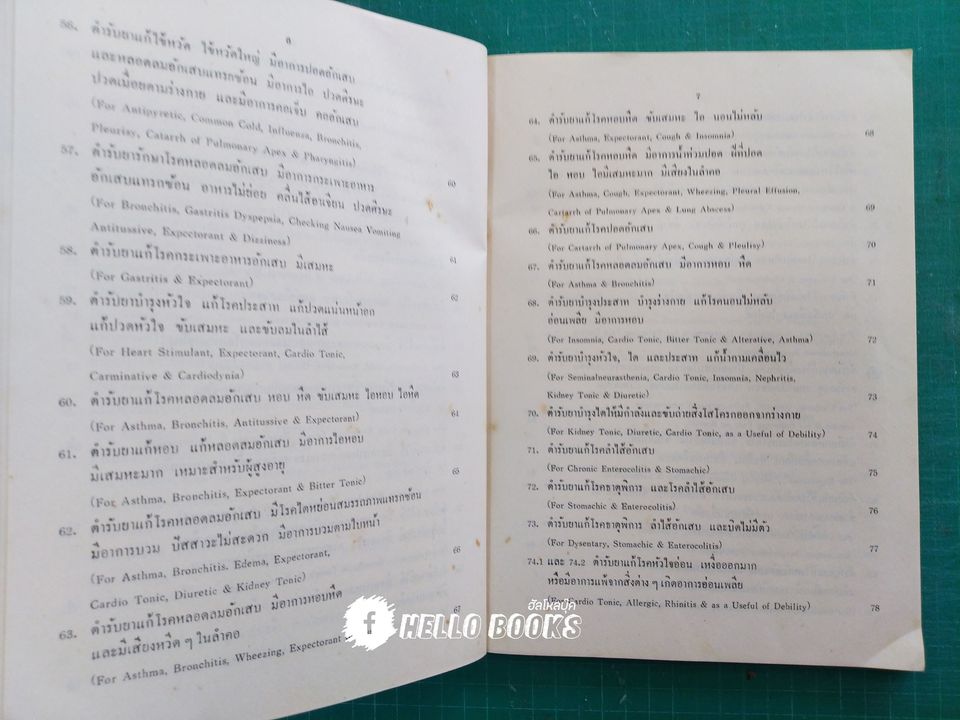 ๘
56. ตำรับยาแก้ไข้หวัด ไข้หวัดใหญ่ มีอาการปอดอักเสบ
และหลอดลมอักเสบแทรกซ้อน มีอาการไอ ปวดศีรษะ
ปวดเมื่อยตามร่างกาย และมีอาการคอเจ็บ คออักเสบ
(For Antipyretic, Common Cold, Influenza, Bronchitis,
Pleurisy, Catarrh of Pulmonary Apex & Pharyngitis)
57. ตำรับยารักษาโรคหลอดลมอักเสบ มีอาการกระเพาะอาหาร 60
อักเสบแทรกซ้อน อาหารไม่ย่อย คลื่นไส้อาเจียน ปวดศีรษะ
(For Bronchitis, Gastritis Dyspepsia, Checking Nausea Vomiting
Antitussive, Expectorant & Dizziness)
58. ตำรับยาแก้โรคกระเพาะอาหารอักเสบ มีเสมหะ 61
(For Gastritis & Expectorant)
59. ตำรับยาบำรุงหัวใจ แก้โรคประสาท แก้ปวดแน่นหน้าอก 62
แก้ปวดหัวใจ ขับเสมหะ และขับลมในลำไส้
(For Heart Stimulant, Expectorant, Cardio Tonic,
Carminative & Cardiodynia) 63
60. ตำรับยาแก้โรคหลอดลมอักเสบ หอบ หืด ขับเสมหะ ไอหอบ ไอหืด
(For Asthma, Bronchitis, Antitussive & Expectorant) 64
61. ตำรับยาแก้หอบ แก้หลอดลมอักเสบ มีอาการไอหอบ
มีเสมหะมาก เหมาะสำหรับผู้สูงอายุ
(For Asthma, Bronchitis, Expectorant & Bitter Tonic) 65
62. ตำรับยาแก้โรคหลอดลมอักเสบ มีโรคไตหย่อนสมรรถภาพแทรกซ้อน
มีอาการบวม ปัสสาวะไม่สะดวก มีอาการบวมตามใบหน้า
(For Asthma, Bronchitis. Edema, Expectorant,
Cardio Tonic, Diuretic & Kidney Tonic) 66
63. ตำรับยาแก้โรคหลอดลมอักเสบ มีอาการหอบหืด
และมีเสียงหวีด ๆ ในลำคอ
(For Asthma, Bronchitis, Wheezing, Expectorant 67
๗
64. ตำรับยาแก้โรคหอบหืด ขับเสมหะ ไอ นอนไม่หลับ
(For Asthma, Expectorant, Cough & Insomnia) 68
65. ตำรับยาแก้โรคหอบหืด มีอาการน้ำท่วมปอด ฝีที่ปอด
ไอ หอบ ไอมีเสมหะมาก มีเสียงในลำคอ
(For Asthma, Cough, Expectorant, Wheezing, Pleural Effusion,
Cartarrh of Pulmonary Apex & Lung Abscess) 69
66. ตำรับยาแก้โรคปอดอักเสบ
(For Cartarrh of Pulmonary Apex, Cough & Pleulisy) 70
67. ตำรับยาแก้โรคหลอดลมอักเสบ มีอาการหอบ หืด
(For Asthma & Bronchitis) 71
68. ตำรับยาบำรุงประสาท บำรุงร่างกาย แก้โรคนอนไม่หลับ
อ่อนเพลีย มีอาการหอบ
(For Insomnia, Cardio Tonic, Bitter Tonic & Alterative, Asthma) 72
69. ตำรับยาบำรุงหัวใจ, ไต และประสาท แก้น้ำกามเคลื่อนไว
(For Seminalneurasthenia, Cardio Tonic, Insomnia, Nephritis,
Kidney Tonic & Diuretic) 73
70. ตำรับยาบำรุงไตให้มีกำลังและขับถ่ายสิ่งโสโครกออกจากร่างกาย
(For Kidney Tonic, Diuretic, Cardio Tonic, as a Useful of Debility) 74
71. ตำรับยาแก้โรคลำไส้อักเสบ
(For Chronic Enterocolitis & Stomachic) 75
72. ตำรับยาแก้โรคธาตุพิการ และโรคลำไส้อักเสบ
(For Stomachic & Enterocolitis) 76
73. ตำรับยาแก้โรคธาตุพิการ ลำไส้อักเสบ และบิดไม่มีตัว
(For Dysentary, Stomachic & Enterocolitis) 77
74.1 และ 74.2 ตำรับยาแก้โรคหัวใจอ่อน เหงื่อออกมาก
หรือมีอาการแพ้จากสิ่งต่าง ๆ เกิดอาการอ่อนเพลีย
(For Cardio Tonic, Allergic, Rhinitis & as a Useful of Debility) 78
ฮัลโหลบุ๊ค
f HELLO BOOKS